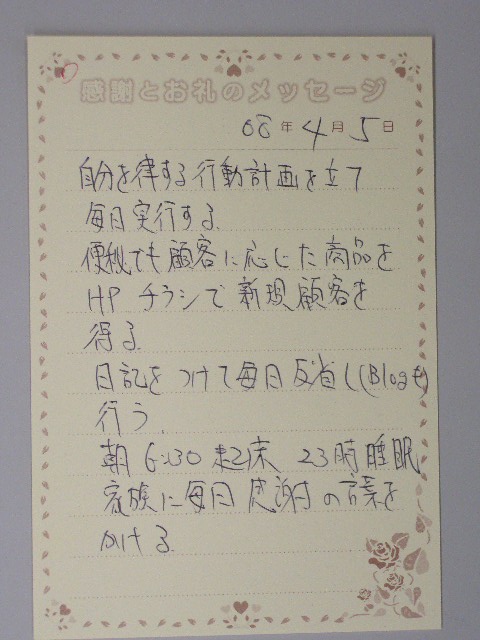 感謝とお礼のメッセージ
08年4月5日
自分を律する行動計画を立て
毎日実行する.
便秘でも顧客に応じた商品を
HP チラシで新規顧客を
得る.
日記をつけて毎日反省し(Blogも)
行う.
朝 6:30 起床 23時睡眠
家族に毎日感謝の言葉を
かける.